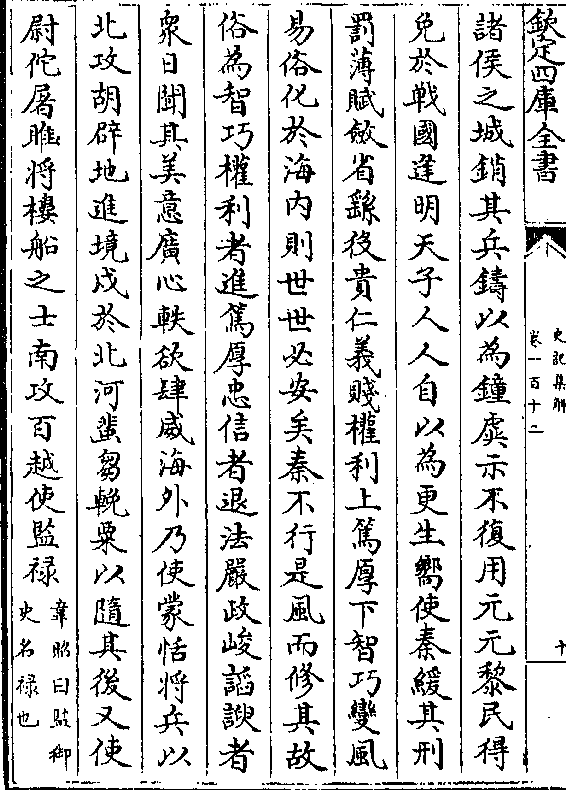 欽定四庫全書
史記集解
卷一百十二
十
諸侯之城銷其兵鑄以為鐘虡示不復用元元黎民得
免於戰國逢明天子人人自以為更生嚮使秦緩其刑
罰薄賦斂省繇役貴仁義賤權利上篤厚下智巧變風
易俗化於海內則世世必安矣秦不行是風而修其故
俗為智巧權利者進篤厚忠信者退法嚴政峻諂諛者
衆日聞其美意廣心軼欲肆威海外乃使蒙恬將兵以
北攻胡辟地進境戍於北河蜚芻輓粟以隨其後又使
尉佗屠睢將樓船之士南攻百越使監祿
韋昭曰監御
史名祿也